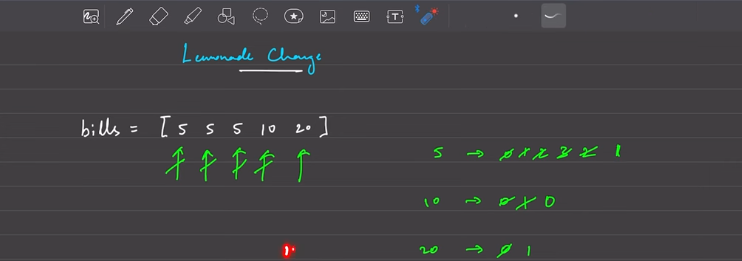 Lemonade Change
bills = [ 5 5 5 10 20 ]
5 → 0 1 2 3 2 1
10 → 0 1 0
20 → 0 1